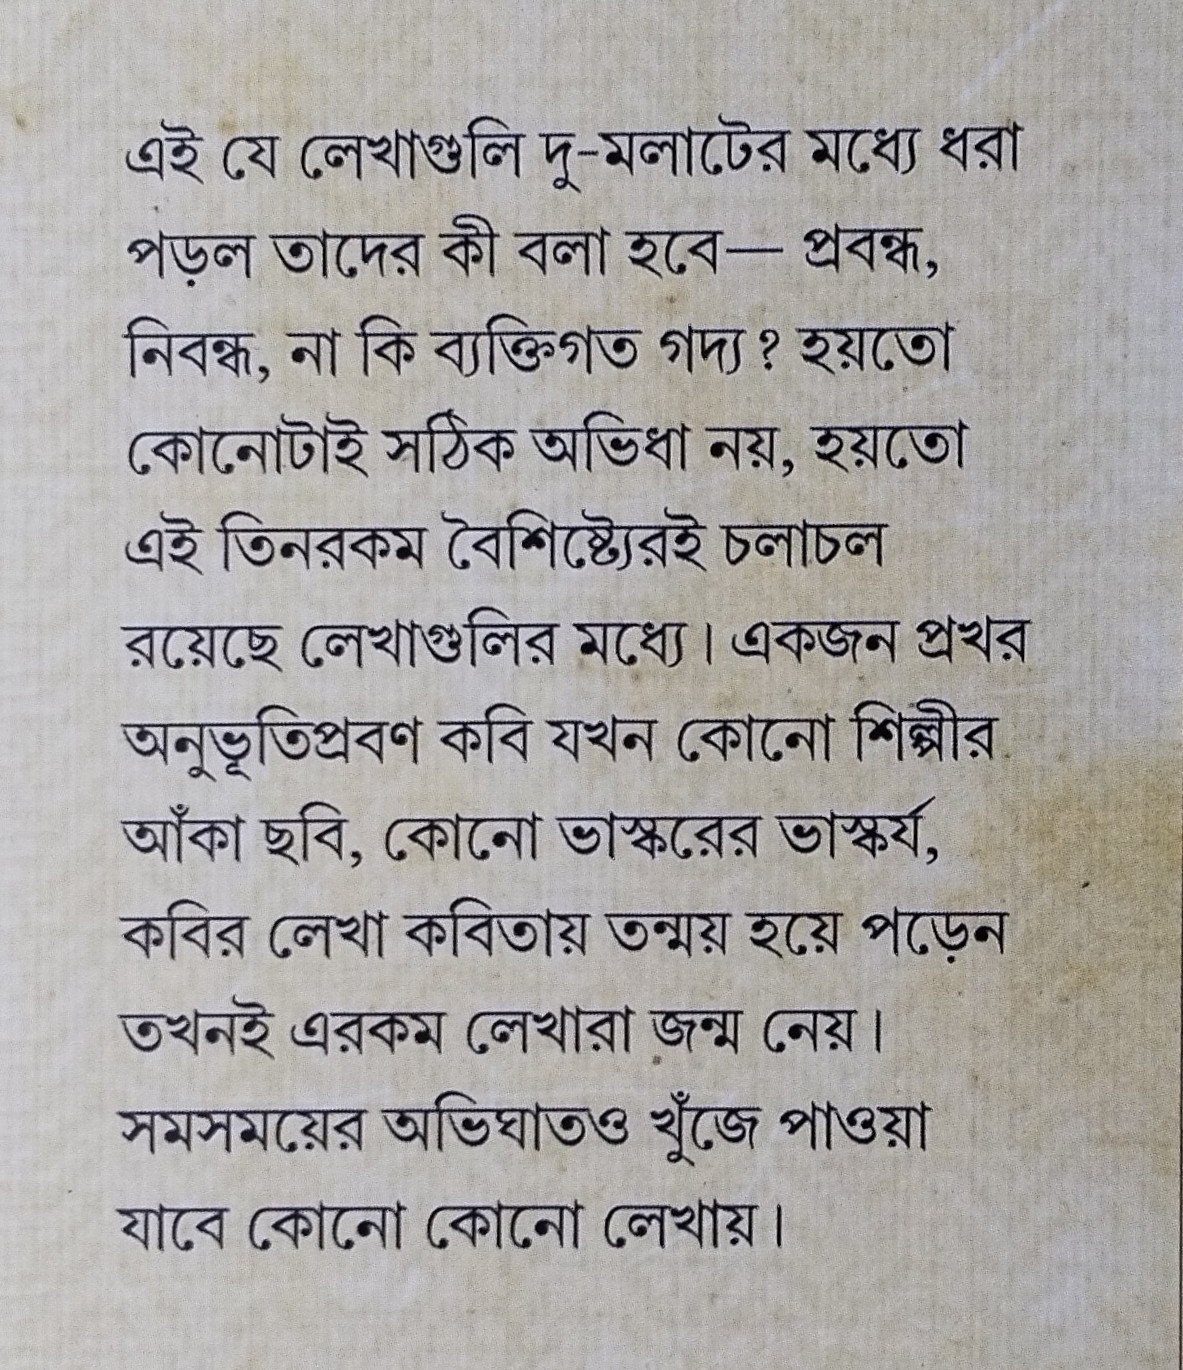 এই যে লেখাগুলি দু-মলাটের মধ্যে ধরা
পড়ল তাদের কী বলা হবে— প্রবন্ধ,
নিবন্ধ, না কি ব্যক্তিগত গদ্য? হয়তো
কোনোটাই সঠিক অভিধা নয়, হয়তো
এই তিনরকম বৈশিষ্ট্যেরই চলাচল
রয়েছে লেখাগুলির মধ্যে। একজন প্রখর
অনুভূতিপ্রবণ কবি যখন কোনো শিল্পীর
আঁকা ছবি, কোনো ভাস্করের ভাস্কর্য,
কবির লেখা কবিতায় তন্ময় হয়ে পড়েন
তখনই এরকম লেখারা জন্ম নেয়।
সমসময়ের অভিঘাতও খুঁজে পাওয়া
যাবে কোনো কোনো লেখায়।